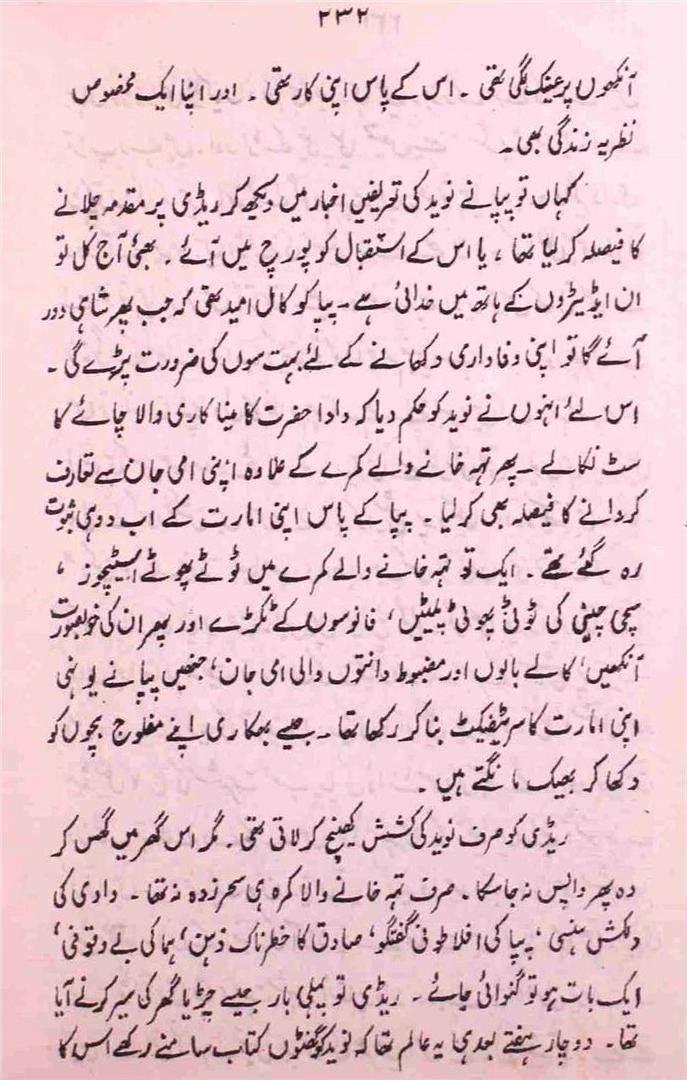 ۲۳۲
آنکھوں پر عینک لگی تھی ۔ اس کے پاس اپنی کار تھی ۔ اور اپنا ایک مخصوص
نظریہ زندگی بھی ۔
کہاں تو پپا نے نوید کی تعریفیں اخبار میں دیکھ کر ریڈی پر مقدمہ چلانے
کا فیصلہ کر لیا تھا ، یا اس کے استقبال کو پورچ میں آئے ۔ بھئی آج کل تو
ان ایڈیٹروں کے ہاتھ میں خدائی ہے ۔ پپا کو کامل امید تھی کہ جب پھر شاہی دور
آئے گا تو اپنی وفاداری دکھانے کے لئے بہت سوں کی ضرورت پڑے گی ۔
اس لئے انہوں نے نوید کو حکم دیا کہ دادا حضرت کا مینا کاری والا چائے کا
سٹ نکالے ۔ پھر تہہ خانے والے کمرے کے علاوہ اپنی امی جان سے تعارف
کروانے کا فیصلہ بھی کر لیا ۔ پپا کے پاس اپنی امارت کے اب دو ہی ثبوت
رہ گئے تھے ۔ ایک تو تہہ خانے والے کمرے میں ٹوٹے پھوٹے اسٹیچوز ،
سچی چینی کی ٹوٹی پھوٹی پلیٹیں ، فانوسوں کے ٹکڑے اور پھر ان کی خوبصورت
آنکھیں ، کالے بالوں اور مضبوط دانتوں والی امی جان ، جنھیں پپا نے یونہی
اپنی امارت کا سرٹیفکیٹ بنا کر رکھا تھا ۔ جیسے بھکاری اپنے مفلوج بچوں کو
دکھا کر بھیک مانگتے ہیں ۔
ریڈی کو صرف نوید کی کشش کھینچ کر لاتی تھی ۔ مگر اس گھر میں گھس کر
وہ پھر واپس نہ جا سکا ۔ صرف تہہ خانے والا کمرہ ہی سحر زدہ نہ تھا ۔ دادی کی
دلکش ہنسی ، پپا کی افلاطونی گفتگو ، صادق کا خطرناک ذہن ، ہما کی بے وقوفی ،
ایک بات ہو تو گنوائی جائے ۔ ریڈی تو پہلی بار جیسے چڑیا گھر کی سیر کرنے آیا
تھا ۔ دو چار ہفتے بعد ہی یہ عالم تھا کہ نوید کو گھنٹوں کتاب سامنے رکھے اس کا